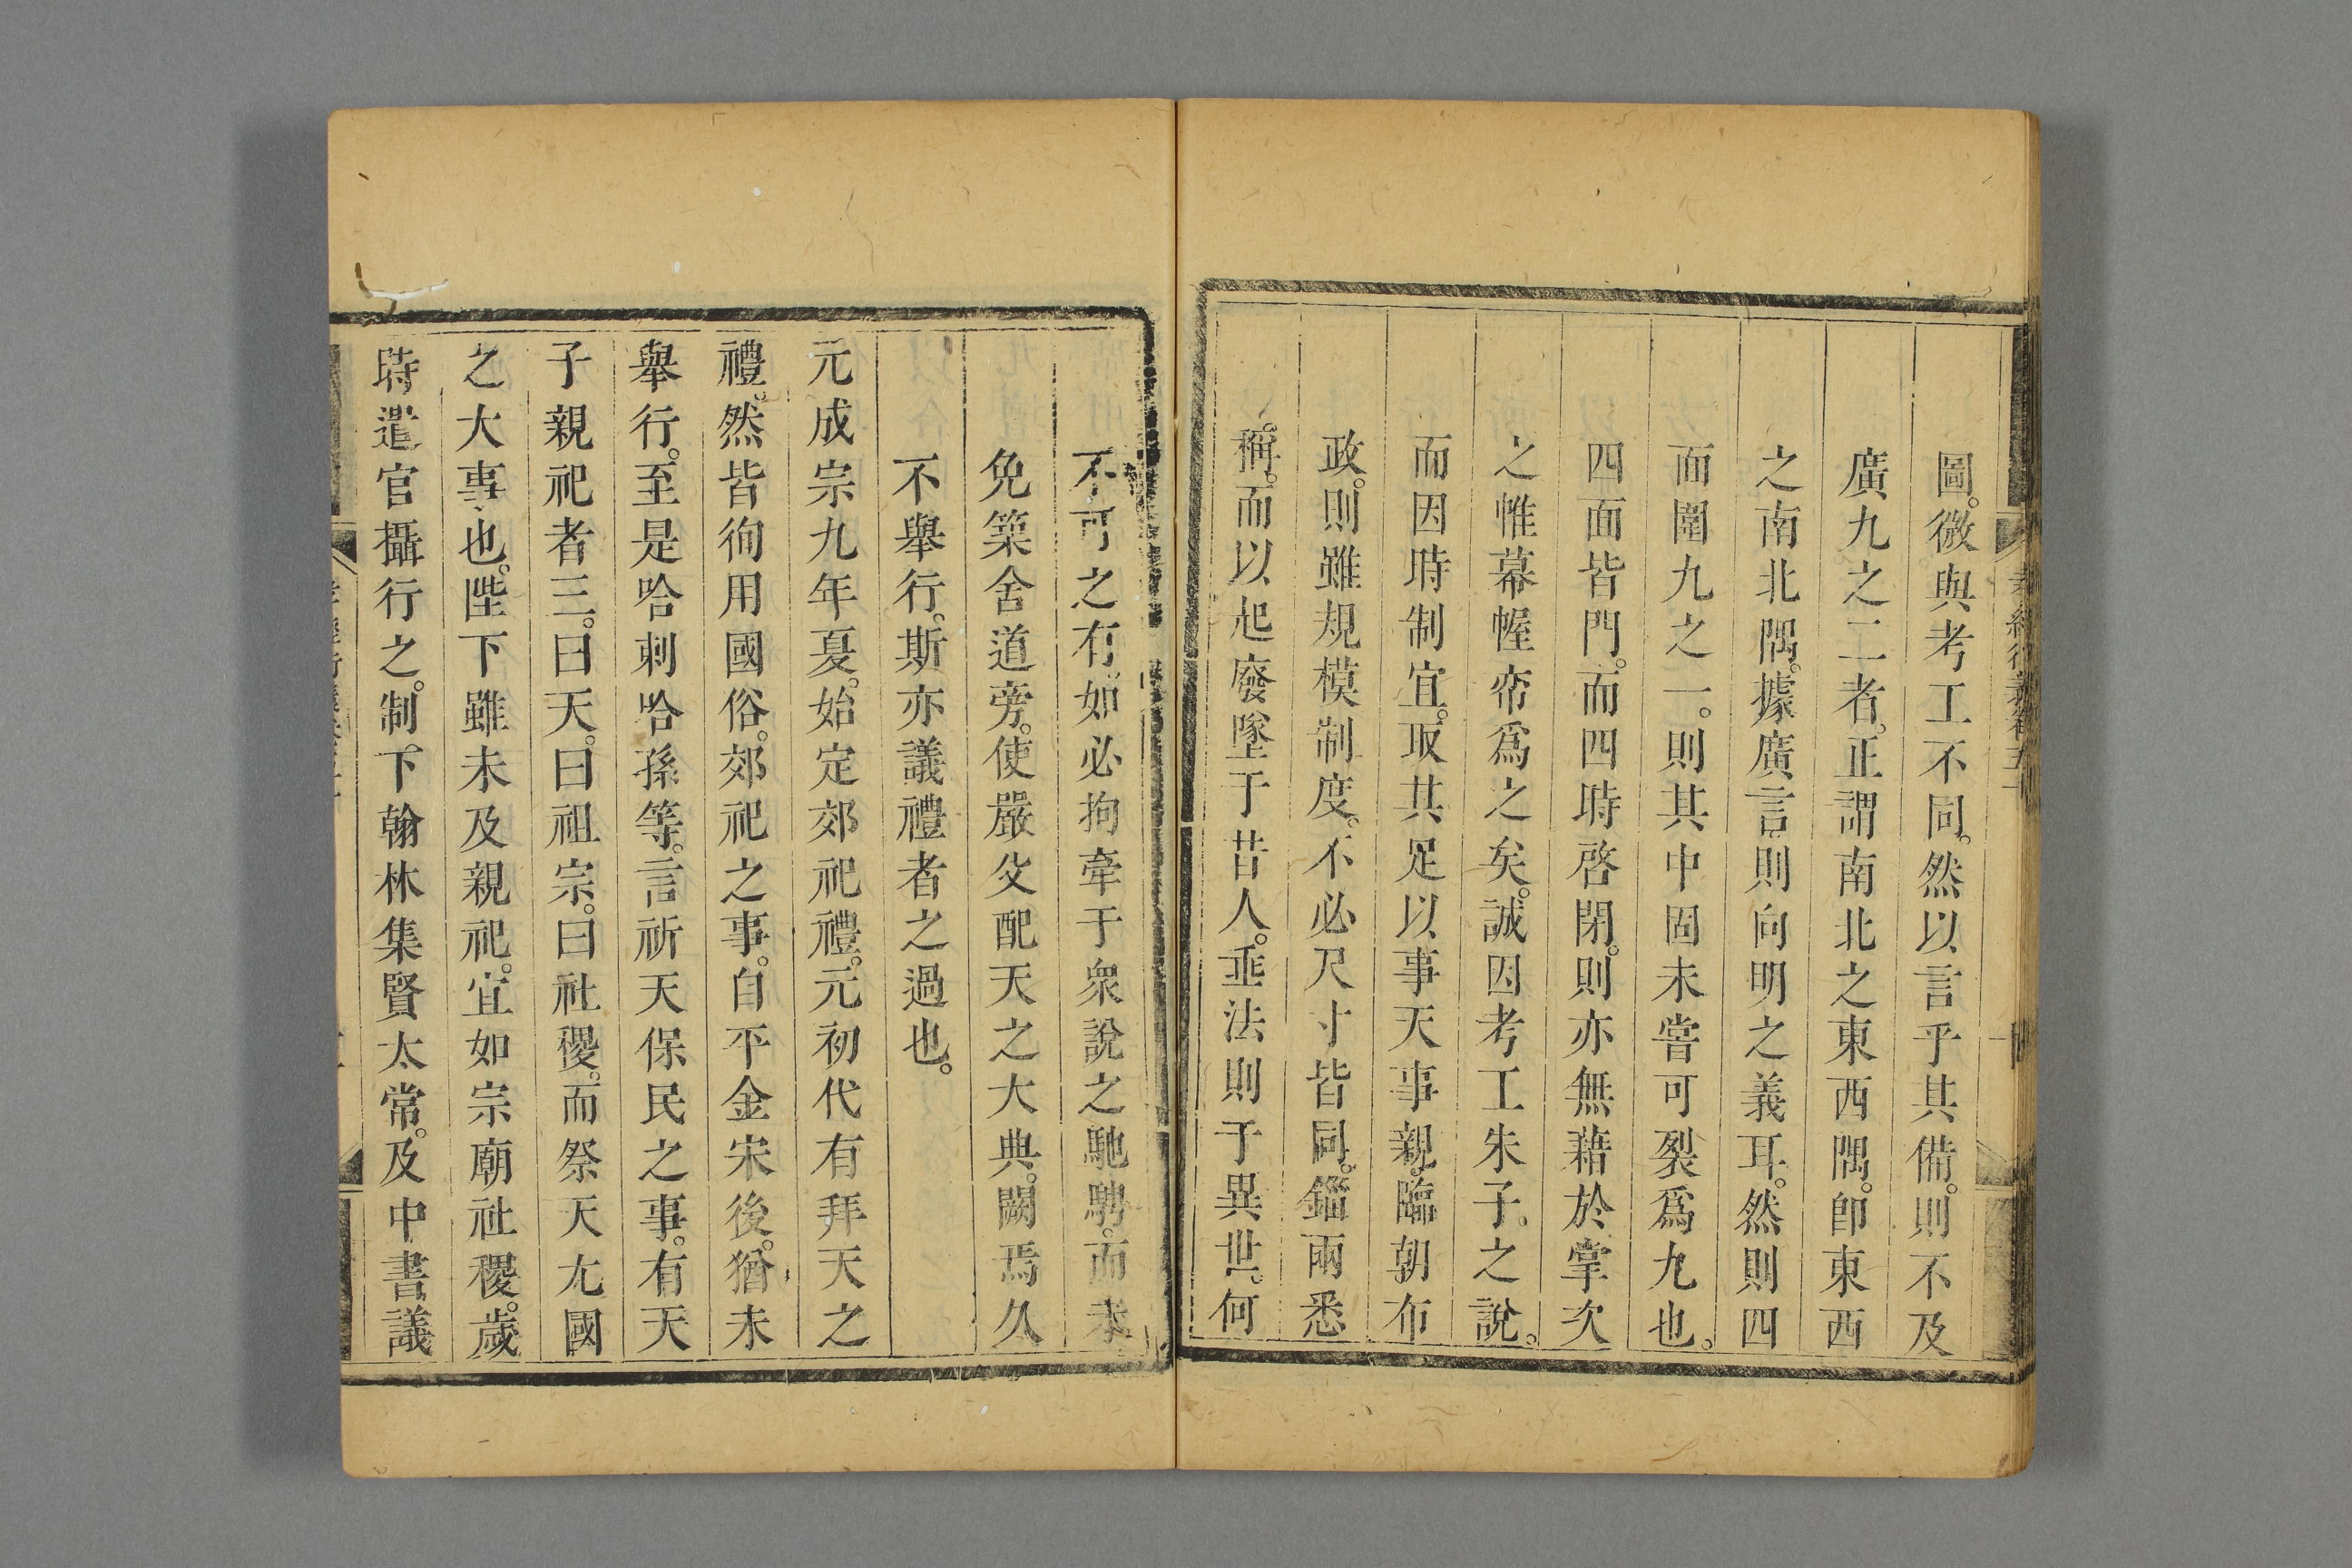 圖。微與考工不同。然以言乎其備。則不及
廣九之二者。正謂南北之東西隅。卽東西
之南北隅。據廣言則向明之義耳。然則四
面圍九之一。則其中固未嘗可裂爲九也。
四面皆門。而四時啓閉。則亦無藉於掌次
之帷幕幄帟爲之矣。誠因考工朱子。之說。
而因時制宜。取其足以事天事親。臨朝布
政。則雖規模制度。不必尺寸皆同。錙兩悉
稱。而以起廢墜于昔人。垂法則于異世。何
不可之有。如必拘牽于衆說之馳騁。而未
免築舍道旁。使嚴父配天之大典。闕焉久
不舉行。斯亦議禮者之過也。
元成宗九年夏。始定郊祀禮。元初代有拜天之
禮。然皆徇用國俗。郊祀之事。自平金宋後。猶未
舉行。至是哈剌哈孫等。言祈天保民之事。有天
子親祀者三。曰天。曰祖宗。曰社稷。而祭天尤國
之大事也。陛下雖未及親祀。宜如宗廟社稷。歲
時遣官攝行之。制下翰林集賢太常。及中書議